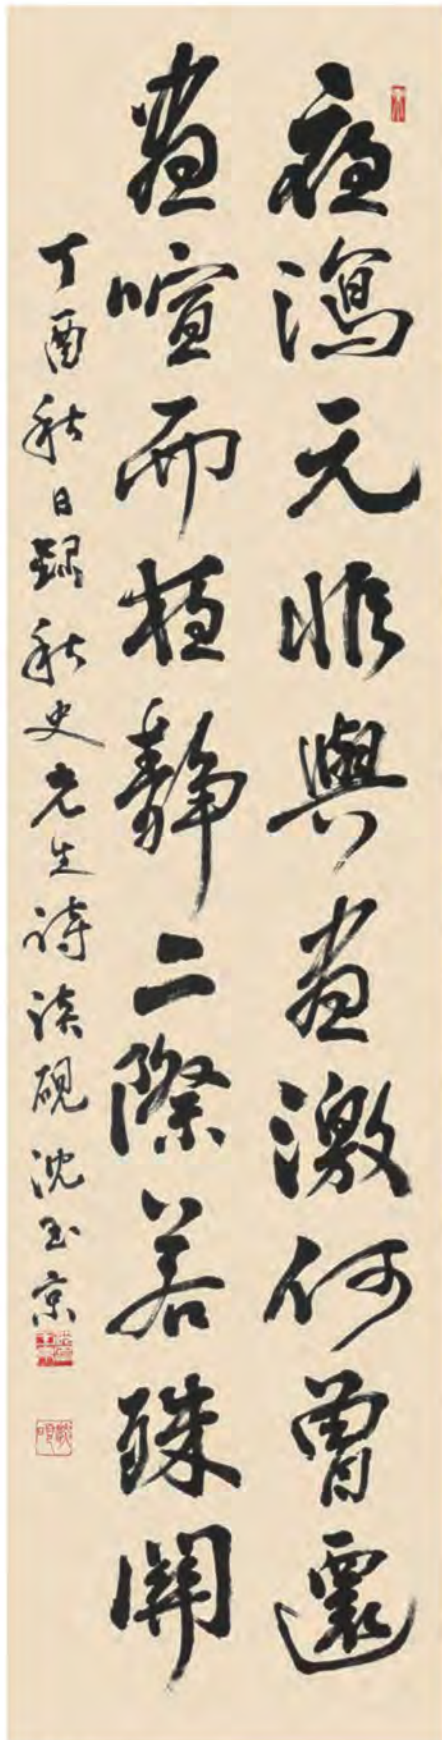 夜瀉元非與晝激何曾還
晝喧而靜二際若殊
丁酉秋日錄秋史先生詩談硯沈玉京